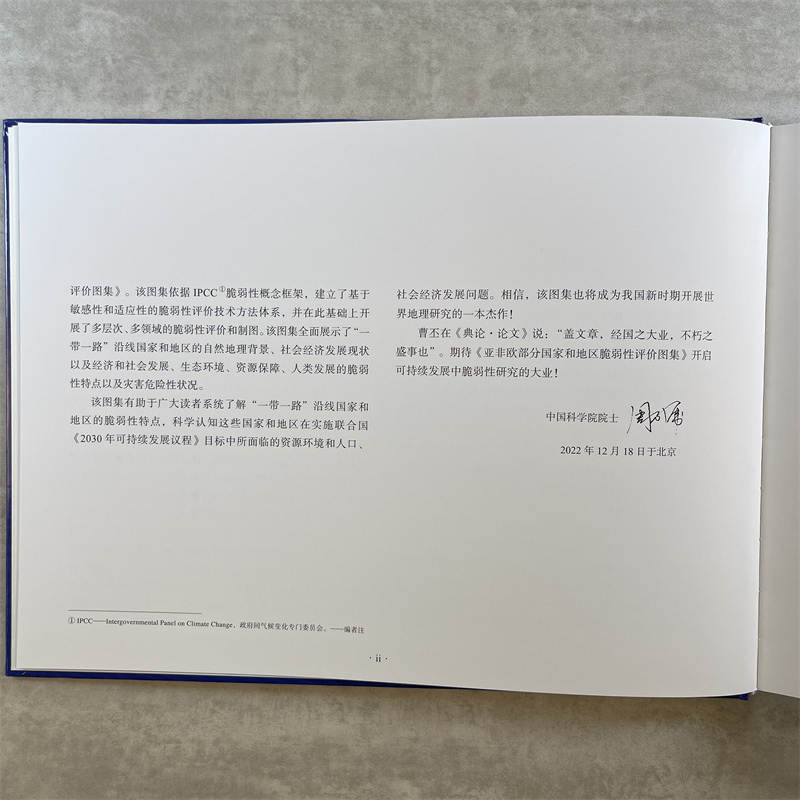 评价图集》。该图集依据 IPCC①脆弱性概念框架，建立了基于
敏感性和适应性的脆弱性评价技术方法体系，并在此基础上开
展了多层次、多领域的脆弱性评价和制图。该图集全面展示了“一
带一路”沿线国家和地区的自然地理背景、社会经济发展现状
以及经济和社会发展、生态环境、资源保障、人类发展的脆弱
性特点以及灾害危险性状况。
该图集有助于广大读者系统了解“一带一路”沿线国家和
地区的脆弱性特点，科学认知这些国家和地区在实施联合国
《2030 年可持续发展议程》目标中所面临的资源环境和人口、
① IPCC——Intergovernmental Panel on Climate Change，政府间气候变化专门委员会。——编者注
社会经济发展问题。相信，该图集也将成为我国新时期开展世
界地理研究的一本杰作！
曹丕在《典论·论文》说：“盖文章，经国之大业，不朽之
盛事也”。期待《亚非欧部分国家和地区脆弱性评价图集》开启
可持续发展中脆弱性研究的大业！
中国科学院院士
2022 年 12 月 18 日于北京
· ii ·